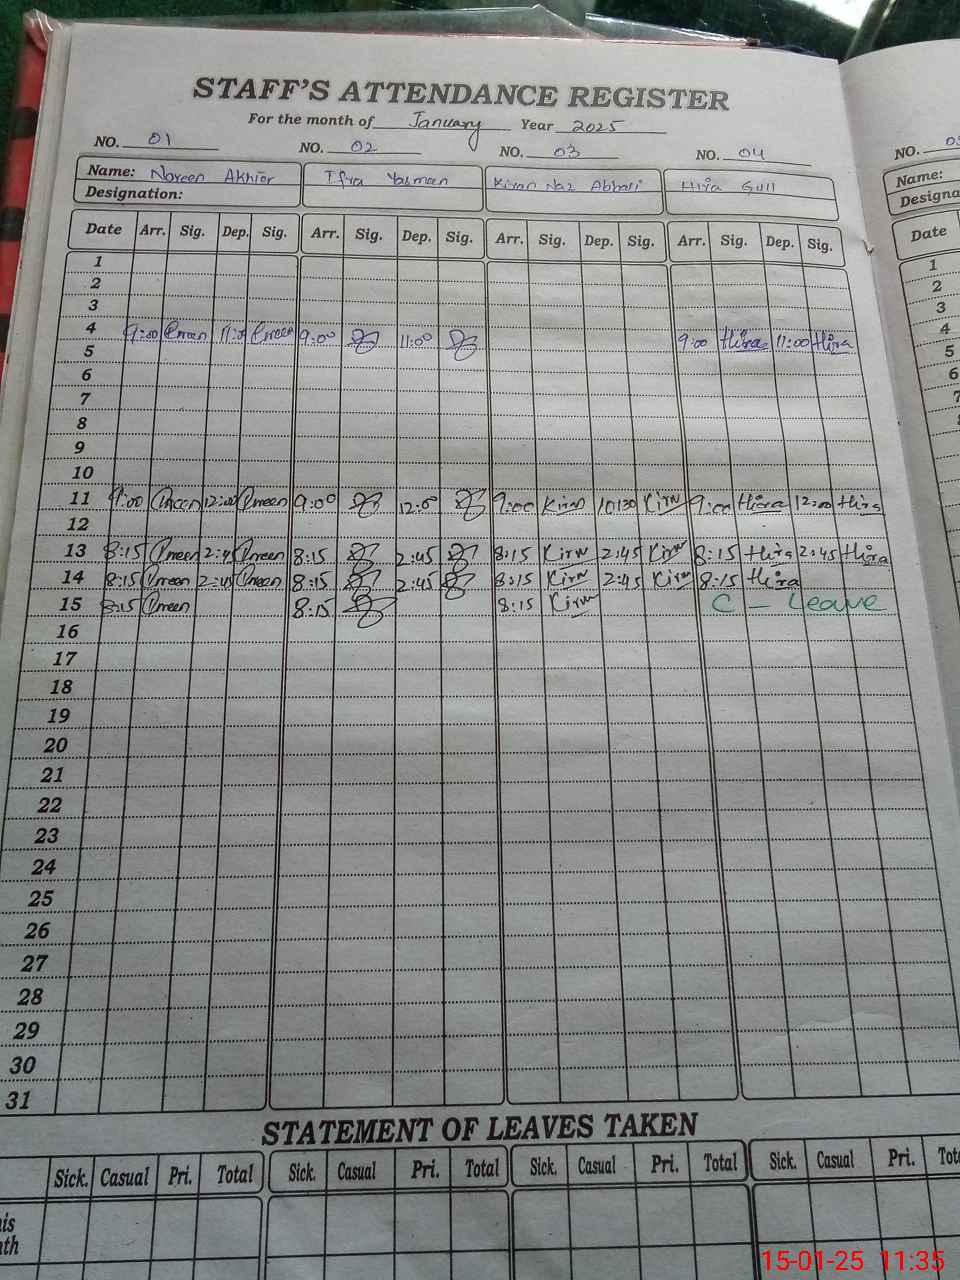 STAFF'S ATTENDANCE REGISTER
For the month of January Year 2025
NO. 01 NO. 02 NO. 03 NO. 04 NO.
Name: Noreen Akhtar Ifra Yasmeen Kiran Naz Abbasi Hira Gull Name:
Designation: Designa
Date Arr. Sig. Dep. Sig. Arr. Sig. Dep. Sig. Arr. Sig. Dep. Sig. Arr. Sig. Dep. Sig. Date
1 1
2 2
3 3
4 9:00 11:00 9:00 11:00 9:00 Hira 11:00 Hira 4
5 5
6 6
7 7
8
9
10
11 9:00 12:00 9:00 12:00 9:00 Kiran 10:30 Kiran 9:00 Hira 12:00 Hira
12
13 8:15 2:45 8:15 2:45 8:15 Kiran 2:45 Kiran 8:15 Hira 2:45 Hira
14 8:15 2:45 8:15 2:45 8:15 Kiran 2:45 Kiran 8:15 Hira
15 8:15 8:15 8:15 Kiran C - Leave
16
17
18
19
20
21
22
23
24
25
26
27
28
29
30
31
STATEMENT OF LEAVES TAKEN
Sick. Casual Pri. Total Sick. Casual Pri. Total Sick. Casual Pri. Total Sick. Casual Pri. Tot
15-01-25 11:35